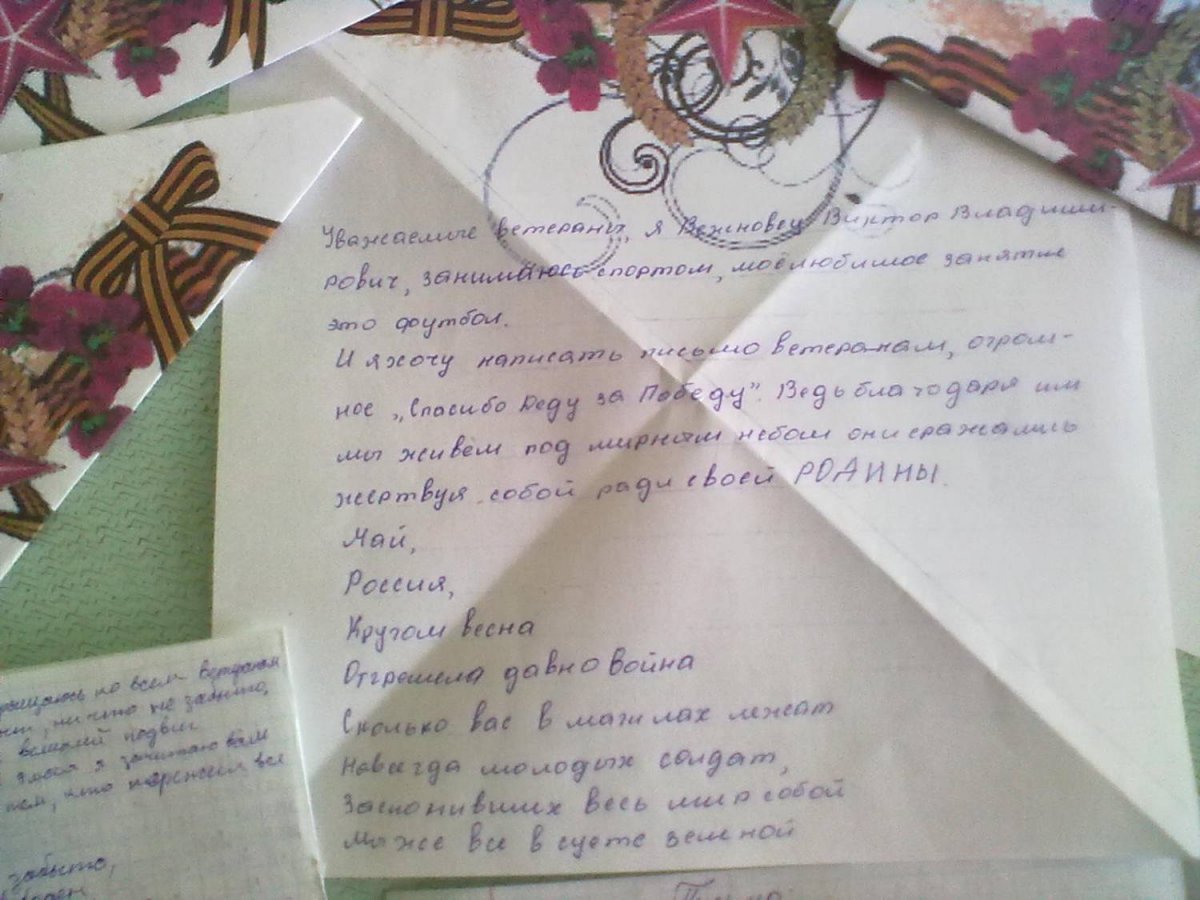 Уважаемые ветераны, я Вежновец Виктор Владими-
рович, занимаюсь спортом, моё любимое занятие
это футбол.
И я хочу написать письмо ветеранам, огром-
ное „Спасибо Деду за Победу". Ведь благодаря им
мы живём под мирным небом они сражались
жертвуя собой ради своей РОДИНЫ.
Май,
Россия,
Кругом весна
Отгремела давно война
Сколько вас в магилах лежат
Навсегда молодых солдат,
Заслонивших весь мир собой
Мы же все в суете земной
ко всем ветеранам
ничто не забыто,
великий подвиг
я зачитаю вам
тем, кто пережил все
забыто,